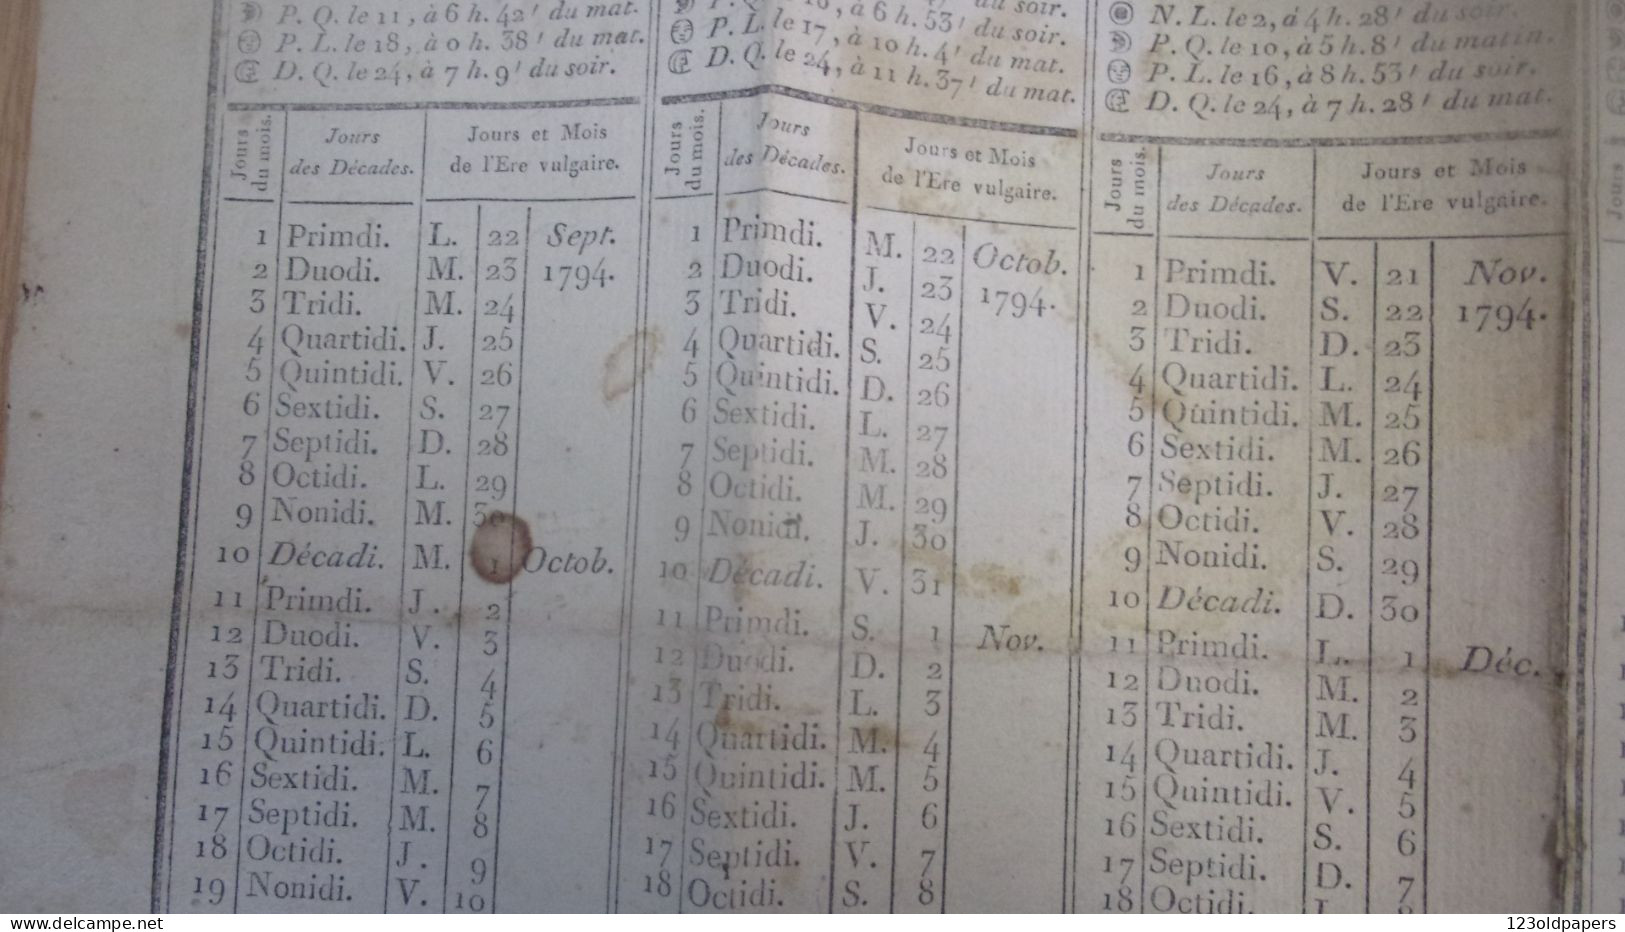 P. Q. le 11, à 6 h. 42′ du mat.
P. L. le 18, à 0 h. 38′ du mat.
D. Q. le 24, à 7 h. 9′ du soir.
Jours du mois.
Jours des Décades.
Jours et Mois de l'Ere vulgaire.
1 Primdi. L. 22 Sept.
2 Duodi. M. 23 1794.
3 Tridi. M. 24
4 Quartidi. J. 25
5 Quintidi. V. 26
6 Sextidi. S. 27
7 Septidi. D. 28
8 Octidi. L. 29
9 Nonidi. M. 30
10 Décadi. M. 1 Octob.
11 Primdi. J. 2
12 Duodi. V. 3
13 Tridi. S. 4
14 Quartidi. D. 5
15 Quintidi. L. 6
16 Sextidi. M. 7
17 Septidi. M. 8
18 Octidi. J. 9
19 Nonidi. V. 10
à 6 h. 53′ du soir.
P. L. le 17, à 10 h. 4′ du mat.
D. Q. le 24, à 11 h. 37′ du mat.
Jours du mois.
Jours des Décades.
Jours et Mois de l'Ere vulgaire.
1 Primdi. M. 22 Octob.
2 Duodi. J. 23 1794.
3 Tridi. V. 24
4 Quartidi. S. 25
5 Quintidi. D. 26
6 Sextidi. L. 27
7 Septidi. M. 28
8 Octidi. M. 29
9 Nonidi. J. 30
10 Décadi. V. 31
11 Primdi. S. 1 Nov.
12 Duodi. D. 2
13 Tridi. L. 3
14 Quartidi. M. 4
15 Quintidi. M. 5
16 Sextidi. J. 6
17 Septidi. V. 7
18 Octidi. S. 8
N. L. le 2, à 4 h. 28′ du soir.
P. Q. le 10, à 5 h. 8′ du matin.
P. L. le 16, à 8 h. 53′ du soir.
D. Q. le 24, à 7 h. 28′ du mat.
Jours du mois.
Jours des Décades.
Jours et Mois de l'Ere vulgaire.
1 Primdi. V. 21 Nov.
2 Duodi. S. 22 1794.
3 Tridi. D. 23
4 Quartidi. L. 24
5 Quintidi. M. 25
6 Sextidi. M. 26
7 Septidi. J. 27
8 Octidi. V. 28
9 Nonidi. S. 29
10 Décadi. D. 30
11 Primdi. L. 1 Déc.
12 Duodi. M. 2
13 Tridi. M. 3
14 Quartidi. J. 4
15 Quintidi. V. 5
16 Sextidi. S. 6
17 Septidi. D. 7
18 Octidi.
Jours
delcampe.net
123oldpapers